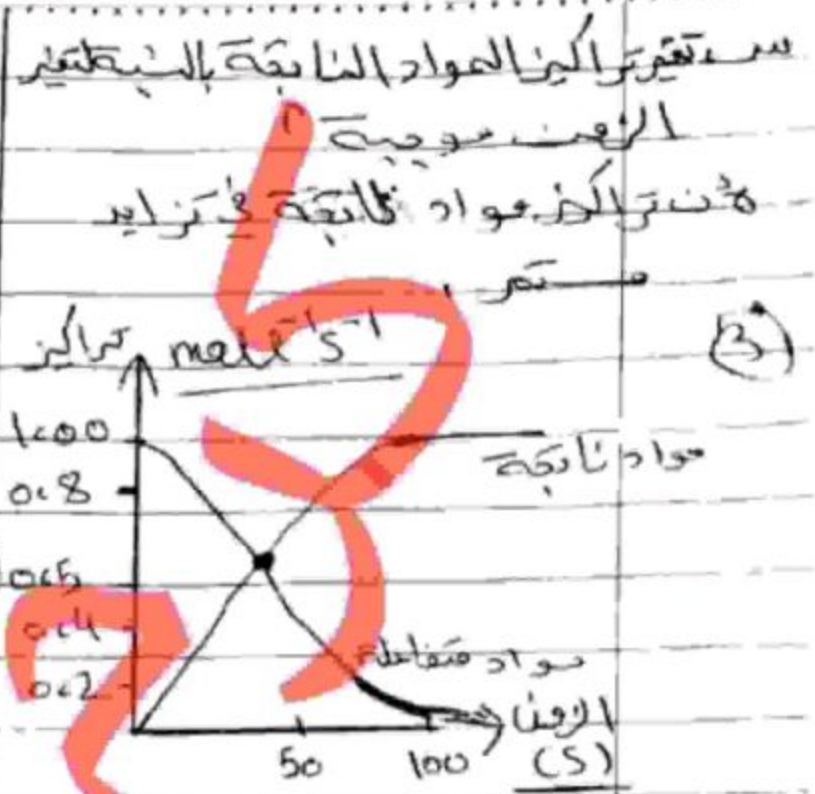 س تغير تراكيز المواد الناتجة بالنسبة لتغير
الزمن موجبة ؟
لأن تراكيز مواد ناتجة في تزايد
مستمر .
(3)
تراكيز molL⁻¹s⁻¹
1.00
0.8
0.5
0.4
0.2
مواد ناتجة
مواد متفاعلة
الزمن
50 100 (S)